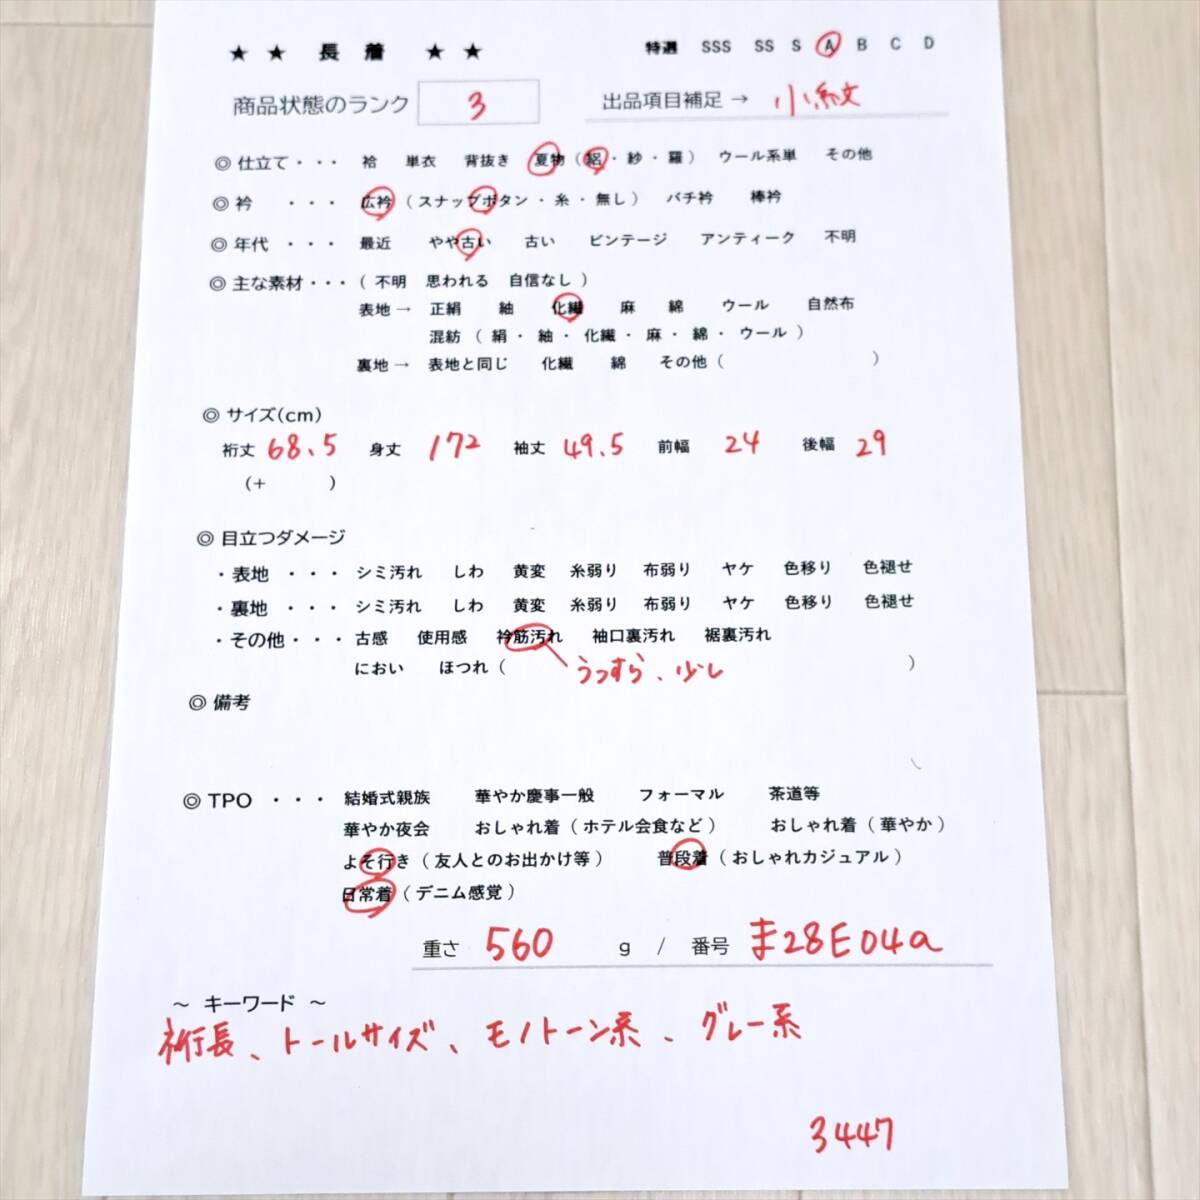 ★ ★ 長 着 ★ ★ 特選 SSS SS S A B C D
商品状態のランク 3 出品項目補足 → 小紋
◎ 仕立て・・・ 袷 単衣 背抜き 夏物 ( 絽・紗・羅 ) ウール系単 その他
◎ 衿 ・・・ 広衿 ( スナップボタン・糸・無し ) バチ衿 棒衿
◎ 年代 ・・・ 最近 やや古い 古い ビンテージ アンティーク 不明
◎ 主な素材・・・ ( 不明 思われる 自信なし )
表地→ 正絹 紬 化繊 麻 綿 ウール 自然布
混紡 ( 絹・紬・化繊・麻・綿・ウール )
裏地→ 表地と同じ 化繊 綿 その他 ( )
◎ サイズ(cm)
裄丈 68.5 身丈 172 袖丈 49.5 前幅 24 後幅 29
(+ )
◎ 目立つダメージ
・表地 ・・・ シミ汚れ しわ 黄変 糸弱り 布弱り ヤケ 色移り 色褪せ
・裏地 ・・・ シミ汚れ しわ 黄変 糸弱り 布弱り ヤケ 色移り 色褪せ
・その他・・・ 古感 使用感 衿筋汚れ 袖口裏汚れ 裾裏汚れ
におい ほつれ ( うっすら、少し )
◎ 備考
◎ TPO ・・・ 結婚式親族 華やか慶事一般 フォーマル 茶道等
華やか夜会 おしゃれ着 ( ホテル会食など ) おしゃれ着 ( 華やか )
よそ行き ( 友人とのお出かけ等 ) 普段着 ( おしゃれカジュアル )
日常着 ( デニム感覚 )
重さ 560 g / 番号 ま28E04a
～ キーワード ～
裄長、トールサイズ、モノトーン系、グレー系
3447